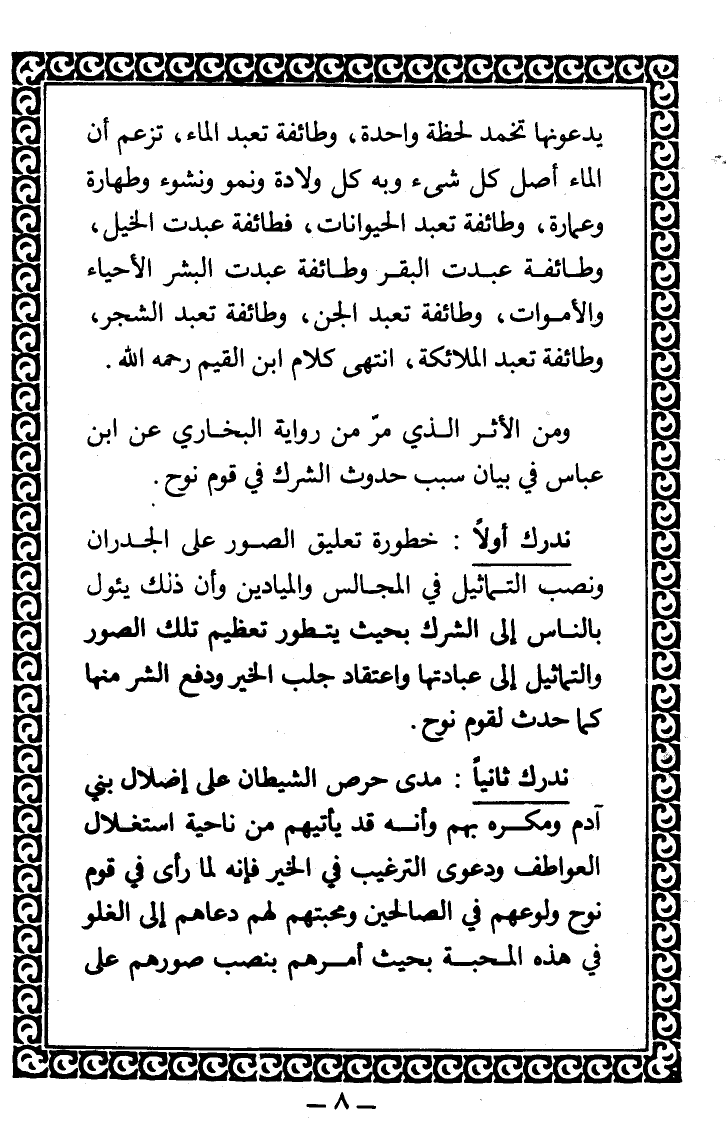 يدعونها تخمد لحظة واحدة، وطائفة تعبد الماء، تزعم أن
الماء أصل كل شيء وبه كل ولادة ونمو ونشوء وطهارة
وعمارة، وطائفة تعبد الحيوانات، فطائفة عبدت الخيل،
وطائفة عبدت البقر وطائفة عبدت البشر الأحياء
والأموات، وطائفة تعبد الجن، وطائفة تعبد الشجر،
وطائفة تعبد الملائكة، انتهى كلام ابن القيم رحمه الله .
ومن الأثر الذي مرّ من رواية البخاري عن ابن
عباس في بيان سبب حدوث الشرك في قوم نوح.
ندرك أولاً : خطورة تعليق الصور على الجدران
ونصب التماثيل في المجالس والميادين وأن ذلك يئول
بالناس إلى الشرك بحيث يتطور تعظيم تلك الصور
والتماثيل إلى عبادتها واعتقاد جلب الخير ودفع الشر منها
كما حدث لقوم نوح.
ندرك ثانياً : مدى حرص الشيطان على إضلال بني
آدم ومكره بهم وأنه قد يأتيهم من ناحية استغلال
العواطف ودعوى الترغيب في الخير فإنه لما رأى في قوم
نوح ولوعهم في الصالحين ومحبتهم لهم دعاهم إلى الغلو
في هذه المحبة بحيث أمرهم بنصب صورهم على
– ٨ –